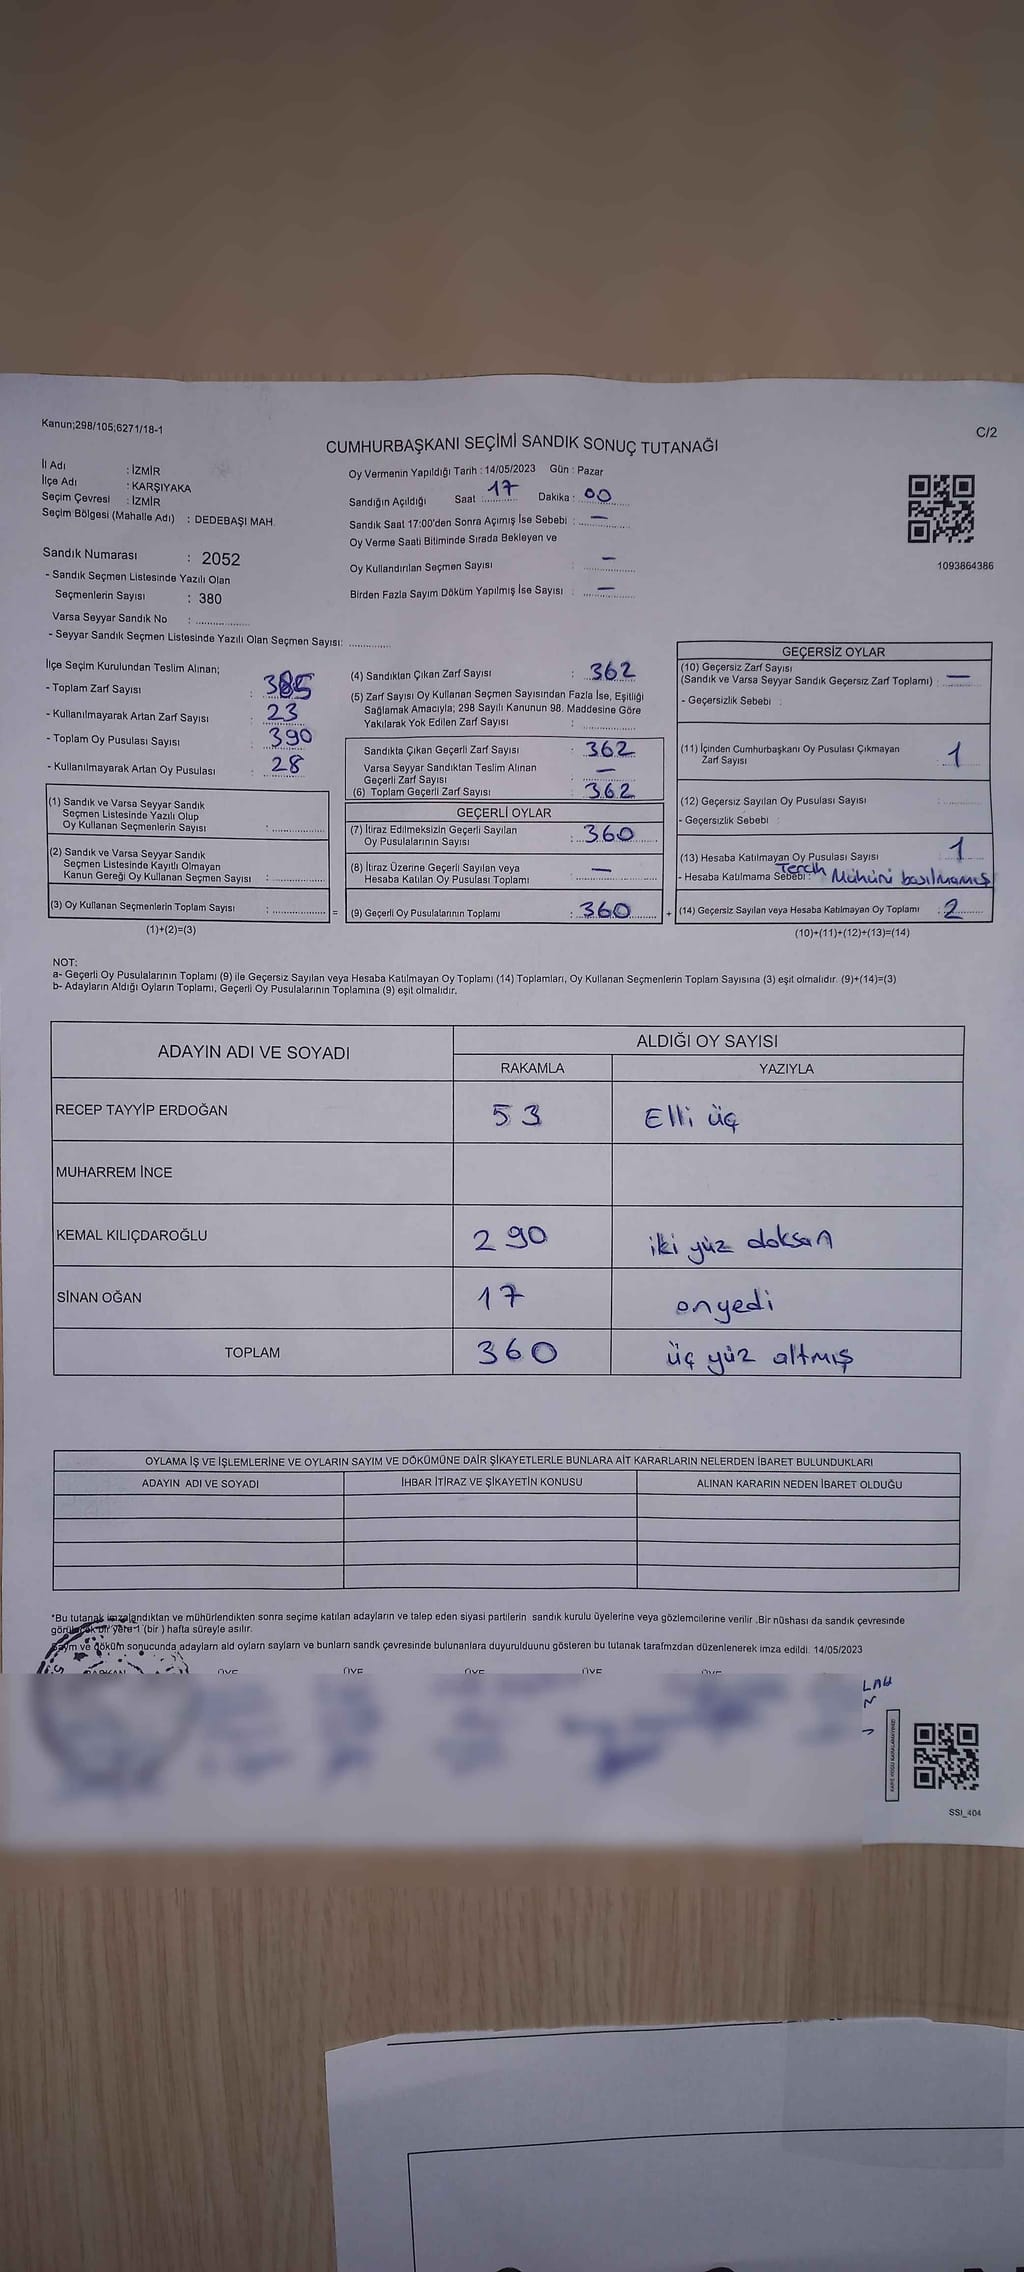 Kanun;298/105;6271/18-1
C/2
CUMHURBAŞKANI SEÇİMİ SANDIK SONUÇ TUTANAĞI
İl Adı : İZMİR
İlçe Adı : KARŞIYAKA
Seçim Çevresi : İZMİR
Seçim Bölgesi (Mahalle Adı) : DEDEBAŞI MAH.
Oy Vermenin Yapıldığı Tarih : 14/05/2023 Gün : Pazar
Sandığın Açıldığı Saat : 17 Dakika : 00
Sandık Saat 17:00'den Sonra Açımış İse Sebebi : —
Oy Verme Saati Bitiminde Sırada Bekleyen ve
Oy Kullandırılan Seçmen Sayısı : —
Birden Fazla Sayım Döküm Yapılmış İse Sayısı : —
1093864386
Sandık Numarası : 2052
- Sandık Seçmen Listesinde Yazılı Olan
Seçmenlerin Sayısı : 380
Varsa Seyyar Sandık No : ..............
- Seyyar Sandık Seçmen Listesinde Yazılı Olan Seçmen Sayısı: ............
İlçe Seçim Kurulundan Teslim Alınan;
- Toplam Zarf Sayısı : 385
- Kullanılmayarak Artan Zarf Sayısı : 23
- Toplam Oy Pusulası Sayısı : 390
- Kullanılmayarak Artan Oy Pusulası : 28
(1) Sandık ve Varsa Seyyar Sandık
Seçmen Listesinde Yazılı Olup
Oy Kullanan Seçmenlerin Sayısı : ..............
(2) Sandık ve Varsa Seyyar Sandık
Seçmen Listesinde Kayıtlı Olmayan
Kanun Gereği Oy Kullanan Seçmen Sayısı : ..............
(3) Oy Kullanan Seçmenlerin Toplam Sayısı : .............. =
(1)+(2)=(3)
(4) Sandıktan Çıkan Zarf Sayısı : 362
(5) Zarf Sayısı Oy Kullanan Seçmen Sayısından Fazla İse, Eşitliği
Sağlamak Amacıyla; 298 Sayılı Kanunun 98. Maddesine Göre
Yakılarak Yok Edilen Zarf Sayısı : ..............
Sandıkta Çıkan Geçerli Zarf Sayısı : 362
Varsa Seyyar Sandıktan Teslim Alınan
Geçerli Zarf Sayısı : —
(6) Toplam Geçerli Zarf Sayısı : 362
GEÇERLİ OYLAR
(7) İtiraz Edilmeksizin Geçerli Sayılan
Oy Pusulalarının Sayısı : 360
(8) İtiraz Üzerine Geçerli Sayılan veya
Hesaba Katılan Oy Pusulası Toplamı : —
(9) Geçerli Oy Pusulalarının Toplamı : 360 +
GEÇERSİZ OYLAR
(10) Geçersiz Zarf Sayısı
(Sandık ve Varsa Seyyar Sandık Geçersiz Zarf Toplamı) : —
- Geçersizlik Sebebi :
(11) İçinden Cumhurbaşkanı Oy Pusulası Çıkmayan
Zarf Sayısı : 1
(12) Geçersiz Sayılan Oy Pusulası Sayısı : ............
- Geçersizlik Sebebi :
(13) Hesaba Katılmayan Oy Pusulası Sayısı : 1
- Hesaba Katılmama Sebebi : Tercih Mühürü basılmamış
(14) Geçersiz Sayılan veya Hesaba Katılmayan Oy Toplamı : 2
(10)+(11)+(12)+(13)=(14)
NOT:
a- Geçerli Oy Pusulalarının Toplamı (9) ile Geçersiz Sayılan veya Hesaba Katılmayan Oy Toplamı (14) Toplamları, Oy Kullanan Seçmenlerin Toplam Sayısına (3) eşit olmalıdır. (9)+(14)=(3)
b- Adayların Aldığı Oyların Toplamı, Geçerli Oy Pusulalarının Toplamına (9) eşit olmalıdır.
ADAYIN ADI VE SOYADI
ALDIĞI OY SAYISI
RAKAMLA YAZIYLA
RECEP TAYYİP ERDOĞAN 53 Elli üç
MUHARREM İNCE
KEMAL KILIÇDAROĞLU 290 iki yüz doksan
SİNAN OĞAN 17 onyedi
TOPLAM 360 üç yüz altmış
OYLAMA İŞ VE İŞLEMLERİNE VE OYLARIN SAYIM VE DÖKÜMÜNE DAİR ŞİKAYETLERLE BUNLARA AİT KARARLARIN NELERDEN İBARET BULUNDUKLARI
ADAYIN ADI VE SOYADI İHBAR İTİRAZ VE ŞİKAYETİN KONUSU ALINAN KARARIN NEDEN İBARET OLDUĞU
*Bu tutanak imzalandıktan ve mühürlendikten sonra seçime katılan adayların ve talep eden siyasi partilerin sandık kurulu üyelerine veya gözlemcilerine verilir .Bir nüshası da sandık çevresinde
görülecek bir yere 1 (bir ) hafta süreyle asılır.
Saym ve döküm sonucunda adaylarn ald oylarn saylarn ve bunlarn sandk çevresinde bulunanlara duyurulduunu gösteren bu tutanak tarafmzdan düzenlenerek imza edildi. 14/05/2023
BAŞKAN ÜYE ÜYE ÜYE ÜYE ÜYE
SSI_404